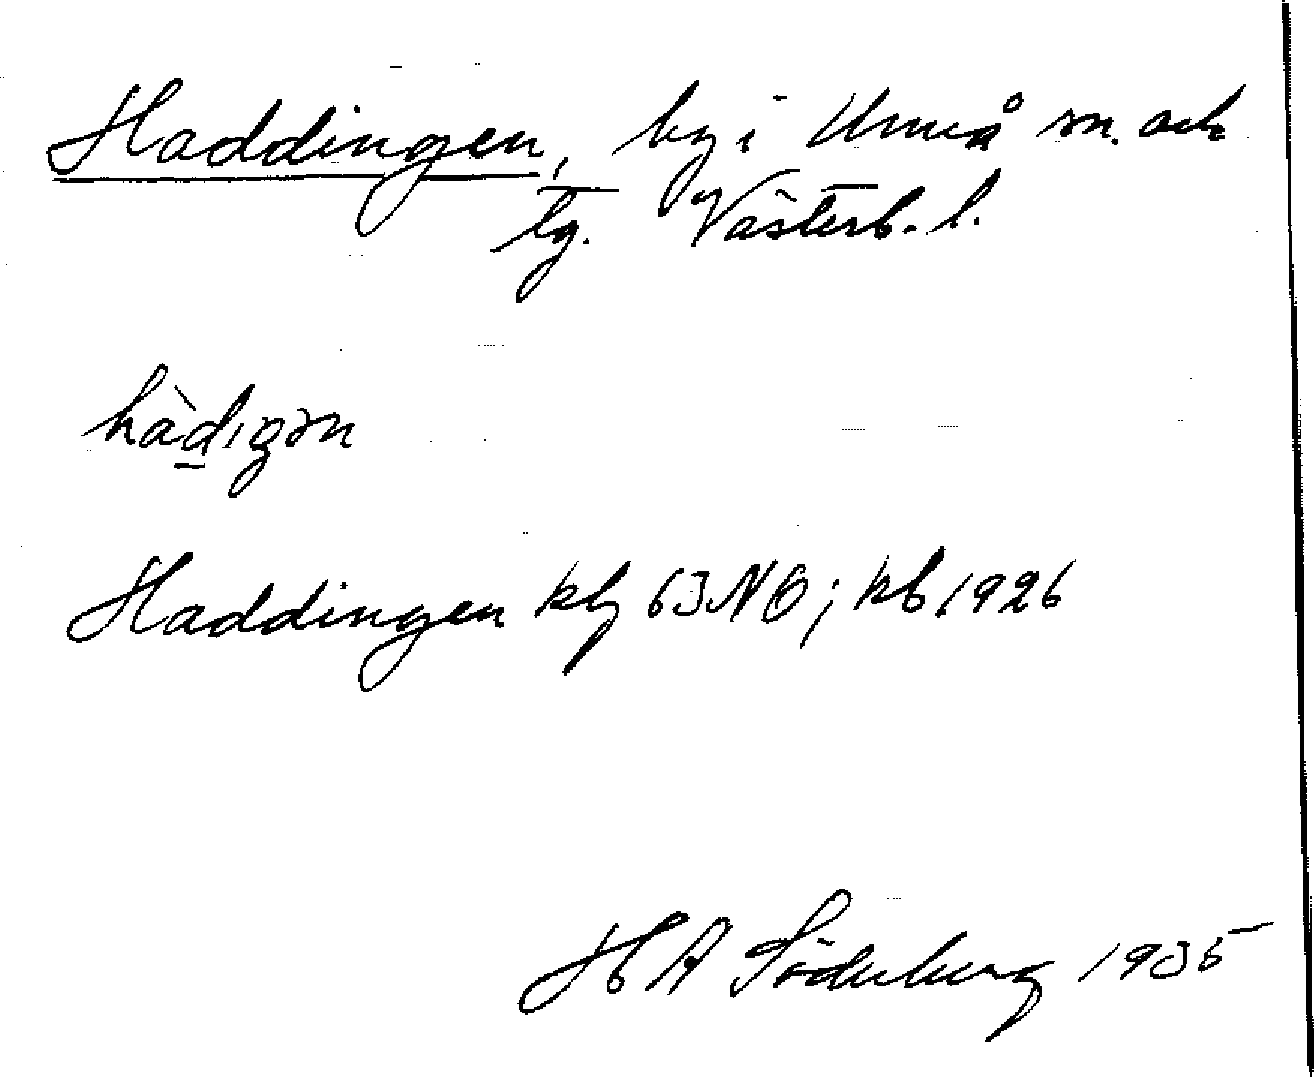 Haddingen, by i Umeå sn. och
tg. Västerb. l.
hàd̲ıgən
Haddingen kbl 63 NO; kb 1926
H A Söderberg 1935